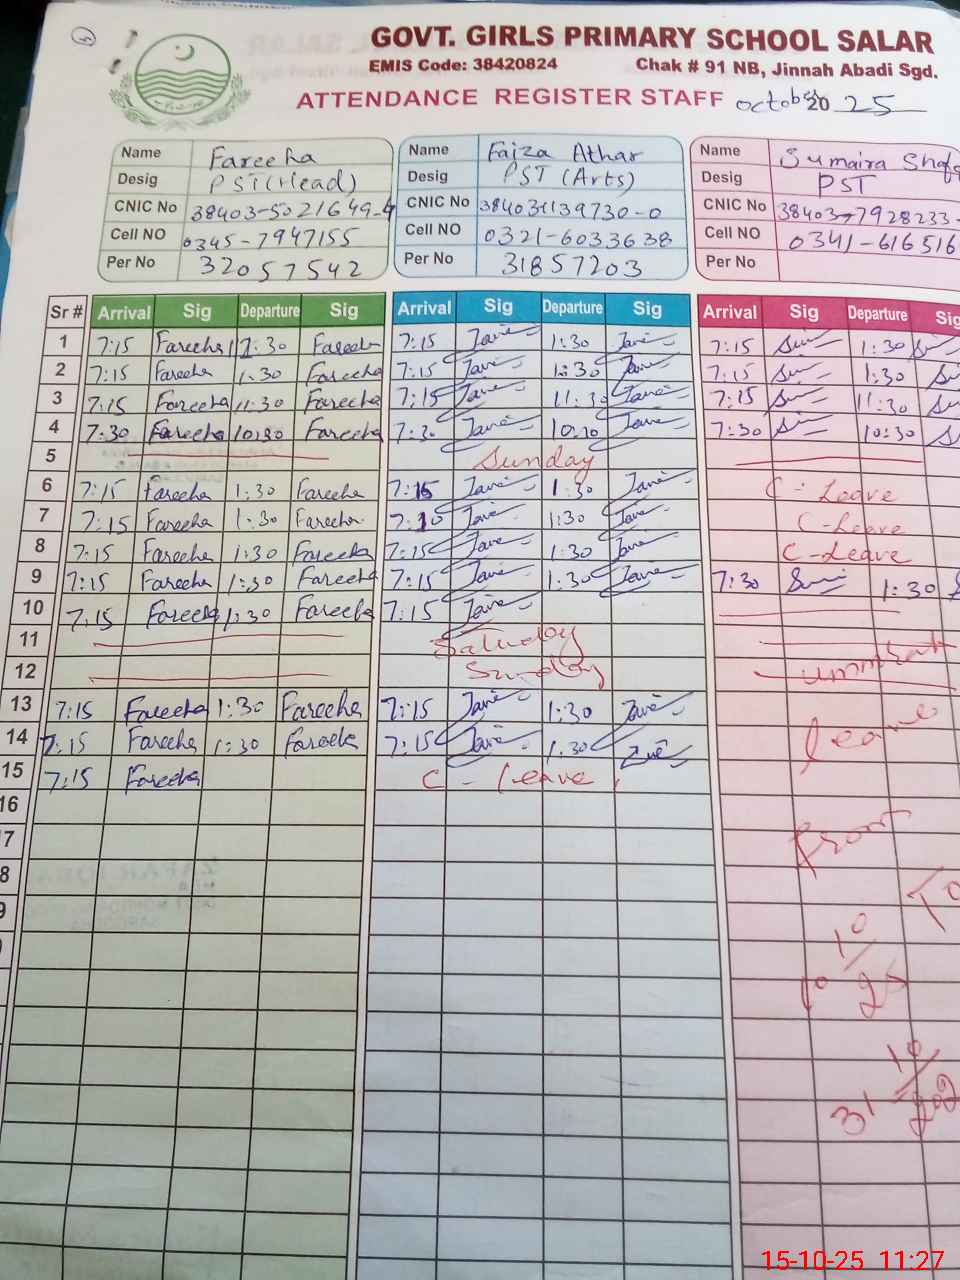 GOVT. GIRLS PRIMARY SCHOOL SALAR
EMIS Code: 38420824 Chak # 91 NB, Jinnah Abadi Sgd.
ATTENDANCE REGISTER STAFF October 2025
Name Fareeha Name Faiza Athar Name Sumaira
Desig PST (Head) Desig PST (Arts) Desig PST
CNIC No 38403-5021649-4 CNIC No CNIC No 38403-7928233-
Cell NO 0345-7947155 Cell NO 0321-6033638 Cell NO 0341-616516
Per No 32057542 Per No 31857203 Per No
Sr # Arrival Sig Departure Sig Arrival Sig Departure Sig Arrival Sig Departure Sig
1 7:15 Fareeha 1:30 Fareeha 7:15 1:30 7:15 1:30
2 7:15 Fareeha 1:30 Fareeha 7:15 1:30 7:15 1:30
3 7:15 Fareeha 11:30 Fareeha 7:15 11:30 7:15 11:30
4 7:30 Fareeha 10:30 Fareeha 7:30 10:30 7:30 10:30
5 Sunday
6 7:15 Fareeha 1:30 Fareeha 7:15 1:30 C-Leave
7 7:15 Fareeha 1:30 Fareeha 1:30 C-Leave
8 7:15 Fareeha 1:30 Fareeha 7:15 1:30 C-Leave
9 7:15 Fareeha 1:30 Fareeha 7:15 1:30 7:30 1:30
10 7:15 Fareeha 1:30 Fareeha 7:15
11 Saturday
12 Sunday ummrah
13 7:15 Fareeha 1:30 Fareeha 7:15 1:30 leave
14 7:15 Fareeha 1:30 Fareeha 7:15 1:30
15 7:15 Fareeha C-leave
16
7 from
8
9 To
10
10
25
31
10
202
15-10-25 11:27